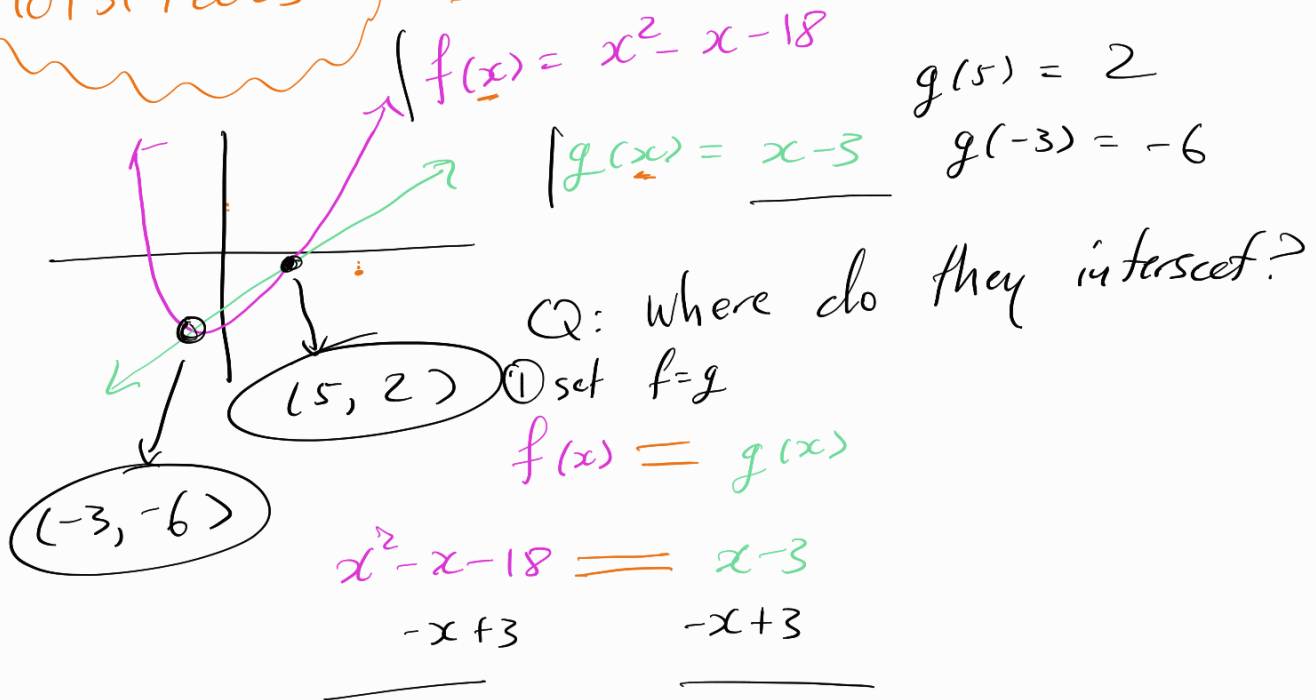 f(x) = x² - x - 18
g(x) = x - 3
g(5) = 2
g(-3) = -6
Q: where do they interscet?
(5, 2)
(-3, -6)
① set f=g
f(x) = g(x)
x² - x - 18 = x - 3
-x + 3 -x + 3